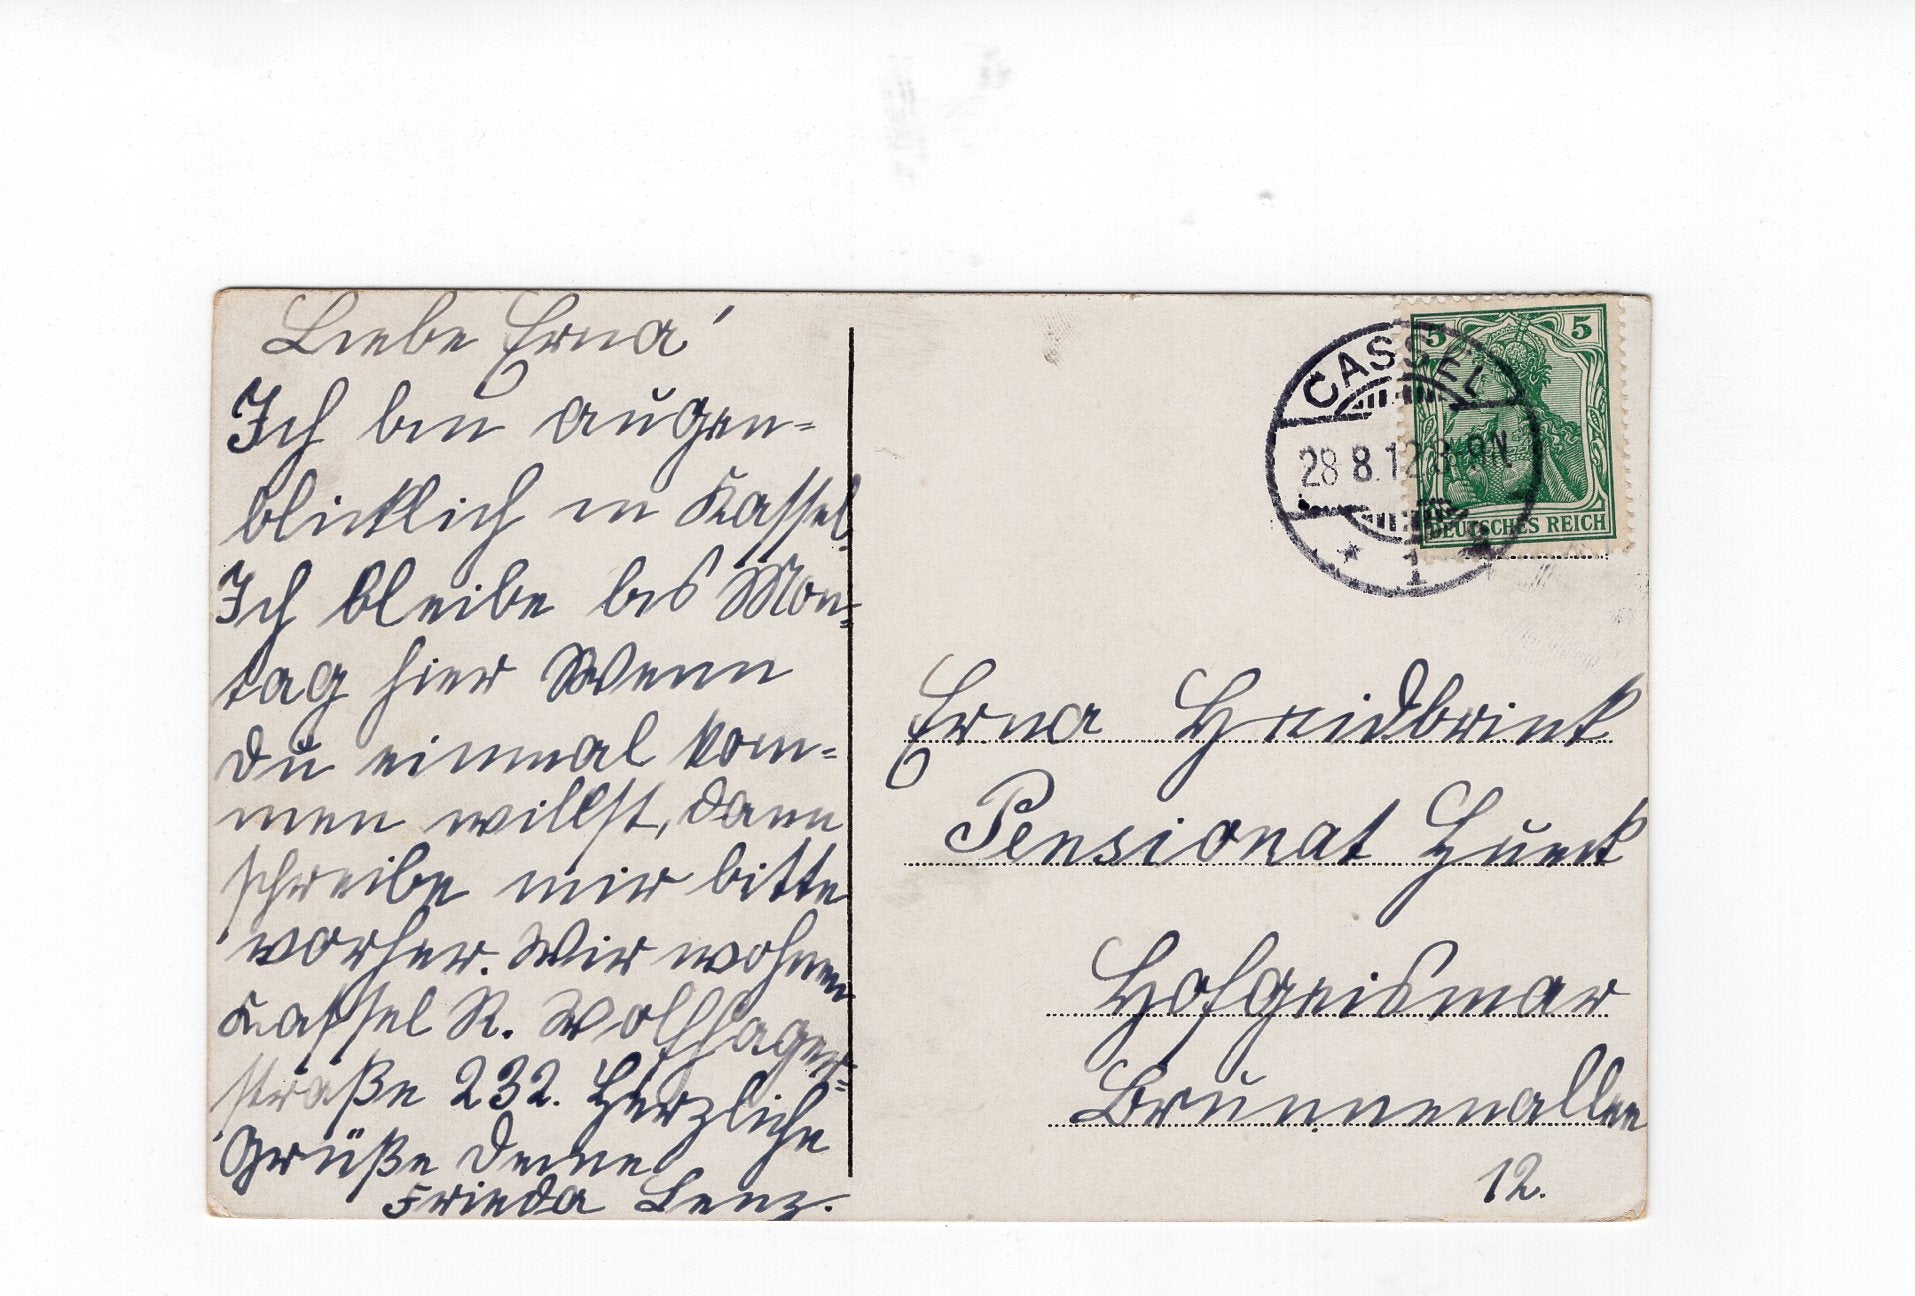 Liebe Erna!
Ich bin augen=
blicklich in Kassel.
Ich bleibe bis Mon=
tag hier Wenn
Du einmal kom=
men willst, dann
schreibe mir bitte
vorher. Wir wohnen
Kassel R. Wolfhager=
straße 232. Herzliche
Grüße Deine
Frieda Lenz.
CASSEL
28 8.12 8-9N
* 1 *
5 5
DEUTSCHES REICH
Erna Heidbrink
Pensionat Hueck
Hofgeismar
Brunnenallee
12.